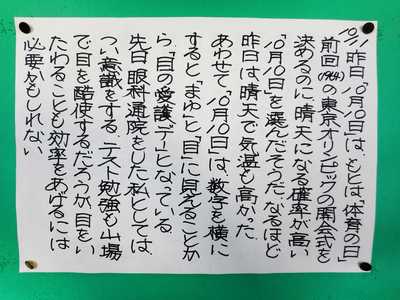 10/11 昨日「10月10日」は、もとは「体育の日」
前回(1964)の東京オリンピックの開会式を
決めるのに晴天になる確率が高い
「10月10日」を選んだそうだ。なるほど
昨日は晴天で気温も高かった。
あわせて、10月10日は、数字を横に
すると、「まゆ」と「目」に見えることか
ら、「目の愛護デー」となっている。
先日眼科通院をした私としては、
つい意識をする。テスト勉強も山場
で目を酷使するだろうが、目をい
たわることも効率をあげるには
必要かもしれない